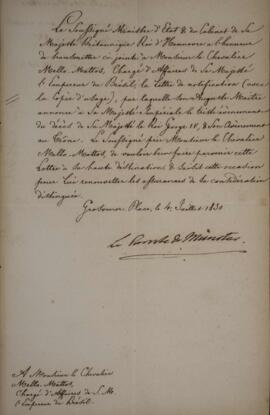 Le Soussigné Ministre d'Etat & de Cabinet de Sa
Majesté Britannique Roi d'Hannovre a l'honneur
de transmettre ci-joint à Monsieur le Chevalier
Mello Mattos, Chargé d'Affaires de Sa Majesté
l'Empereur du Brésil, la Lettre de notification (avec
la Copie d'usage), par laquelle Son Auguste Maître
annonce à Sa Majesté Impériale le triste évènement
du décès de Sa Majesté le Roi George IV, & Son Avènement
au Trône. Le Soussigné prie Monsieur le Chevalier
Mello Mattos, de vouloir bien faire parvenir cette
Lettre à sa haute destination & saisit cette occasion
pour Lui renouveller les assurances de sa considération
distinguée.
Grosvenor Place, le 4 Juillet 1830
le Comte de Münster
A Monsieur le Chevalier
Mello Mattos,
Chargé d'Affaires de S. M.
l'Empereur du Brésil